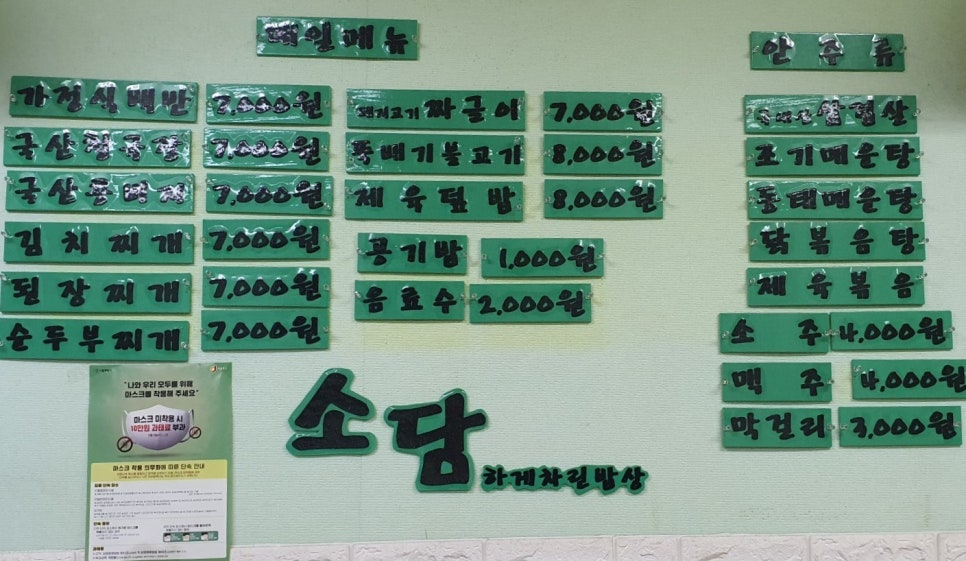 메인메뉴
가정식백반 7,000원
국산청국장 7,000원
국산콩비지 7,000원
김치찌개 7,000원
된장찌개 7,000원
순두부찌개 7,000원
돼지고기 짜글이 7,000원
뚝배기불고기 8,000원
제육덮밥 8,000원
공기밥 1,000원
음료수 2,000원
안주류
삼겹살
조기매운탕
동태매운탕
닭볶음탕
제육볶음
소주 4,000원
맥주 4,000원
막걸리 3,000원
소담
하게차린밥상
"나와 우리 모두를 위해
마스크를 착용해 주세요"
마스크 미착용 시
10만원 과태료 부과
마스크 착용 의무화에 따른 단속 안내